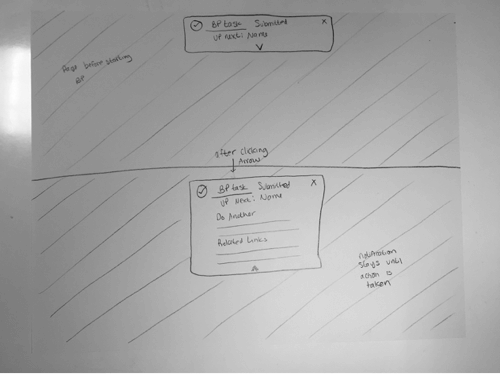 BP task Submitted X
Up next: Name
Page before starting
BP
after clicking
Arrow
BP task Submitted X
Up Next: Name
Do Another
Related Links
notification
stays until
action is
taken